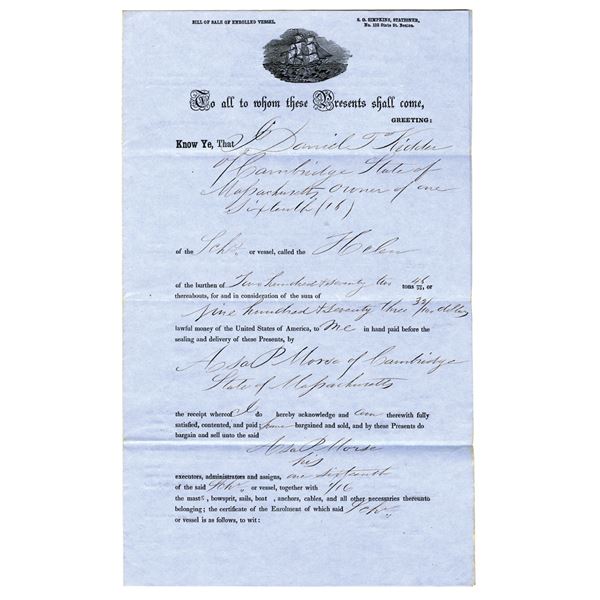 BILL OF SALE OF ENROLLED VESSEL.
S. G. SIMPKINS, STATIONER,
No. 122 State St. Boston.
To all to whom these Presents shall come,
GREETING:
Know Ye, That I Daniel T Kidder
of Cambridge State of
Massachusetts owner of one
Sixteenth (16)
of the Schr. or vessel, called the Helen
of the burthen of Two hundred & seventy two tons or
thereabouts, for and in consideration of the sum of
Nine hundred & seventy three 33/100 dollars
lawful money of the United States of America, to me in hand paid before the
sealing and delivery of these Presents, by
Asa P Morse of Cambridge
State of Massachusetts
the receipt whereof I do hereby acknowledge and am therewith fully
satisfied, contented, and paid; have bargained and sold, and by these Presents do
bargain and sell unto the said
Asa P Morse
his
executors, administrators and assigns, one sixteenth
of the said Schr. or vessel, together with 1/16
the masts, bowsprit, sails, boat , anchors, cables, and all other necessaries thereunto
belonging; the certificate of the Enrolment of which said Schr.
or vessel is as follows, to wit: